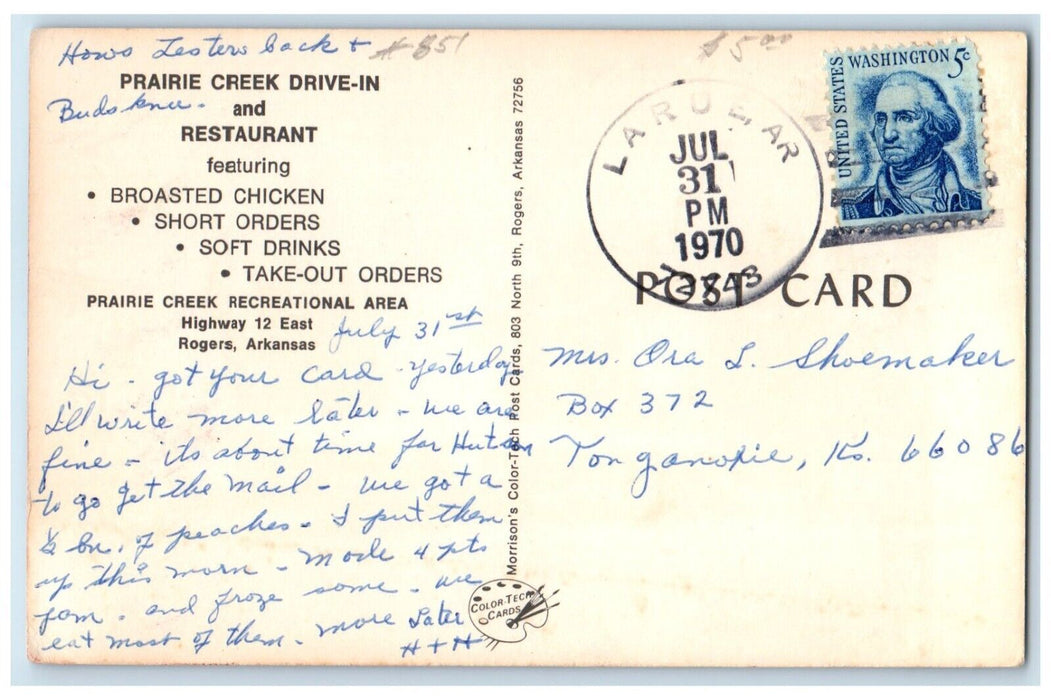 Hows Lesters back +
Buds knee.
#851
$5.00
PRAIRIE CREEK DRIVE-IN
and
RESTAURANT
featuring
• BROASTED CHICKEN
• SHORT ORDERS
• SOFT DRINKS
• TAKE-OUT ORDERS
PRAIRIE CREEK RECREATIONAL AREA
Highway 12 East
Rogers, Arkansas
July 31st
Hi - got your card - yesterday
I'll write more later - we are
fine - its about time for Hutson
to go get the mail - we got a
½ bu. of peaches - I put them
up this morn - made 4 pts
jam - and froze some - we
eat most of them - more Later
H + H
Morrison's Color-Tech Post Cards, 803 North 9th, Rogers, Arkansas 72756
COLOR-TECH
CARDS
LARUE, AR
JUL
31
PM
1970
UNITED STATES
WASHINGTON 5c
POST CARD
Mrs. Ora L. Shoemaker
Box 372
Tonganoxie, Ks. 66086